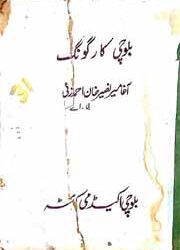 بلوچی کارگونگ
آغا میر نصیر خان احمد زئی
بی۔ اے
بلوچی اکیڈمی کوئٹہ